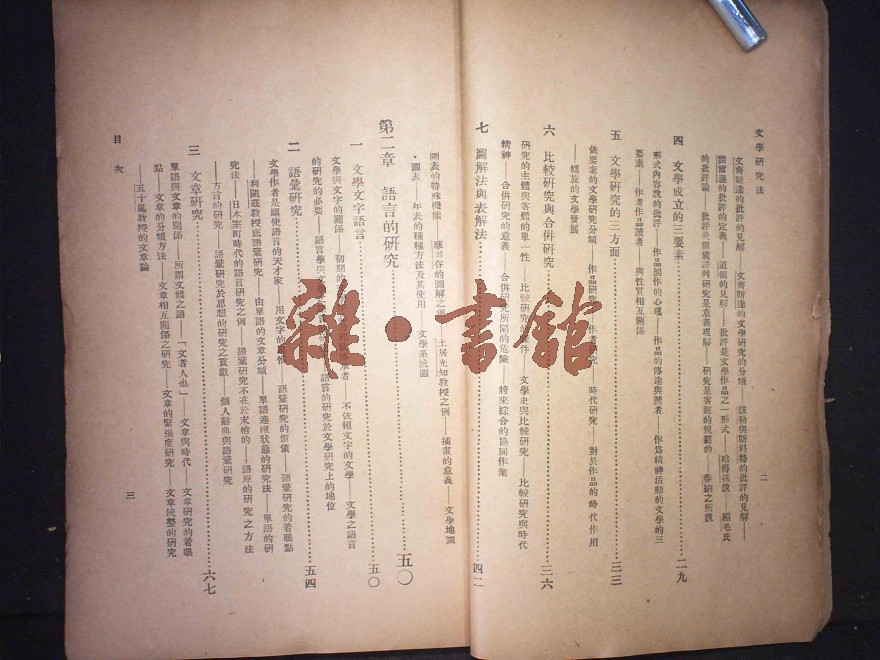 文學研究法
二
文齊斯達的批評的見解——文齊斯達的文學研究的分類——蓋勒與斯科特的批評的見解——
蓋爾遜的批評的定義——道頓的見解——批評是文學作品之一形式——哈得孫說——稻毛氏
的批評論——批評是價值評判研究是意義理解——研究是客觀的規範的——泰納之所說
四 文學成立的三要素……二九
形式內容說的批評——作品製作的心理——作品的傳達與讀者——作為精神活動的文學的三
要素——作者作品讀者——與性質相互關係
五 文學研究的三方面……三三
依要素的文學研究分類——作品研究——作者研究——時代研究——對於作品的時代作用
——螺旋的文學發展
六 比較研究與合併研究……三六
研究的主體與客體的單一性——比較研究的條件——文學史與比較研究——比較研究與時代
精神——合併研究的意義——合併研究所陷的危險——將來綜合的協同作業
七 圖解法與表解法……四二
圖表的特殊機能——摩爾吞的圖解之例——土居光知教授之例——插畫的意義——文學地圖
・圖表——年表的種種方法及其使用——文學系統圖
第二章 語言的研究……五〇
一 文學文字語言……五〇
文學與文字的關係——初期的者——不依賴文字的文學——文學之語言
的研究的必要——語言學與文——語言的研究於文學研究上的地位
二 語彙研究……五四
文學作者是驅使語言的天才家——用文字的——語彙研究的價值——語彙研究的着眼點
——利開茲教授底語彙研究——由單語的文章分類——單語連續狀態的研究法——單語的研
究法——日本室町時代的語言研究之例——語彙研究不在於末梢的——語原的研究之方法
——方言的研究——語彙研究於思想的研究之貢獻——個人辭典與語彙研究
三 文章研究……六七
單語與文章的關係——所謂文體之語——「文者人也」——文章與時代——文章研究的着眼
點——文章的分類方法——文章相互關係之研究——文章的緊張度研究——文章統整的研究
——五十嵐教授的文章論
目次
三
雜・書舘